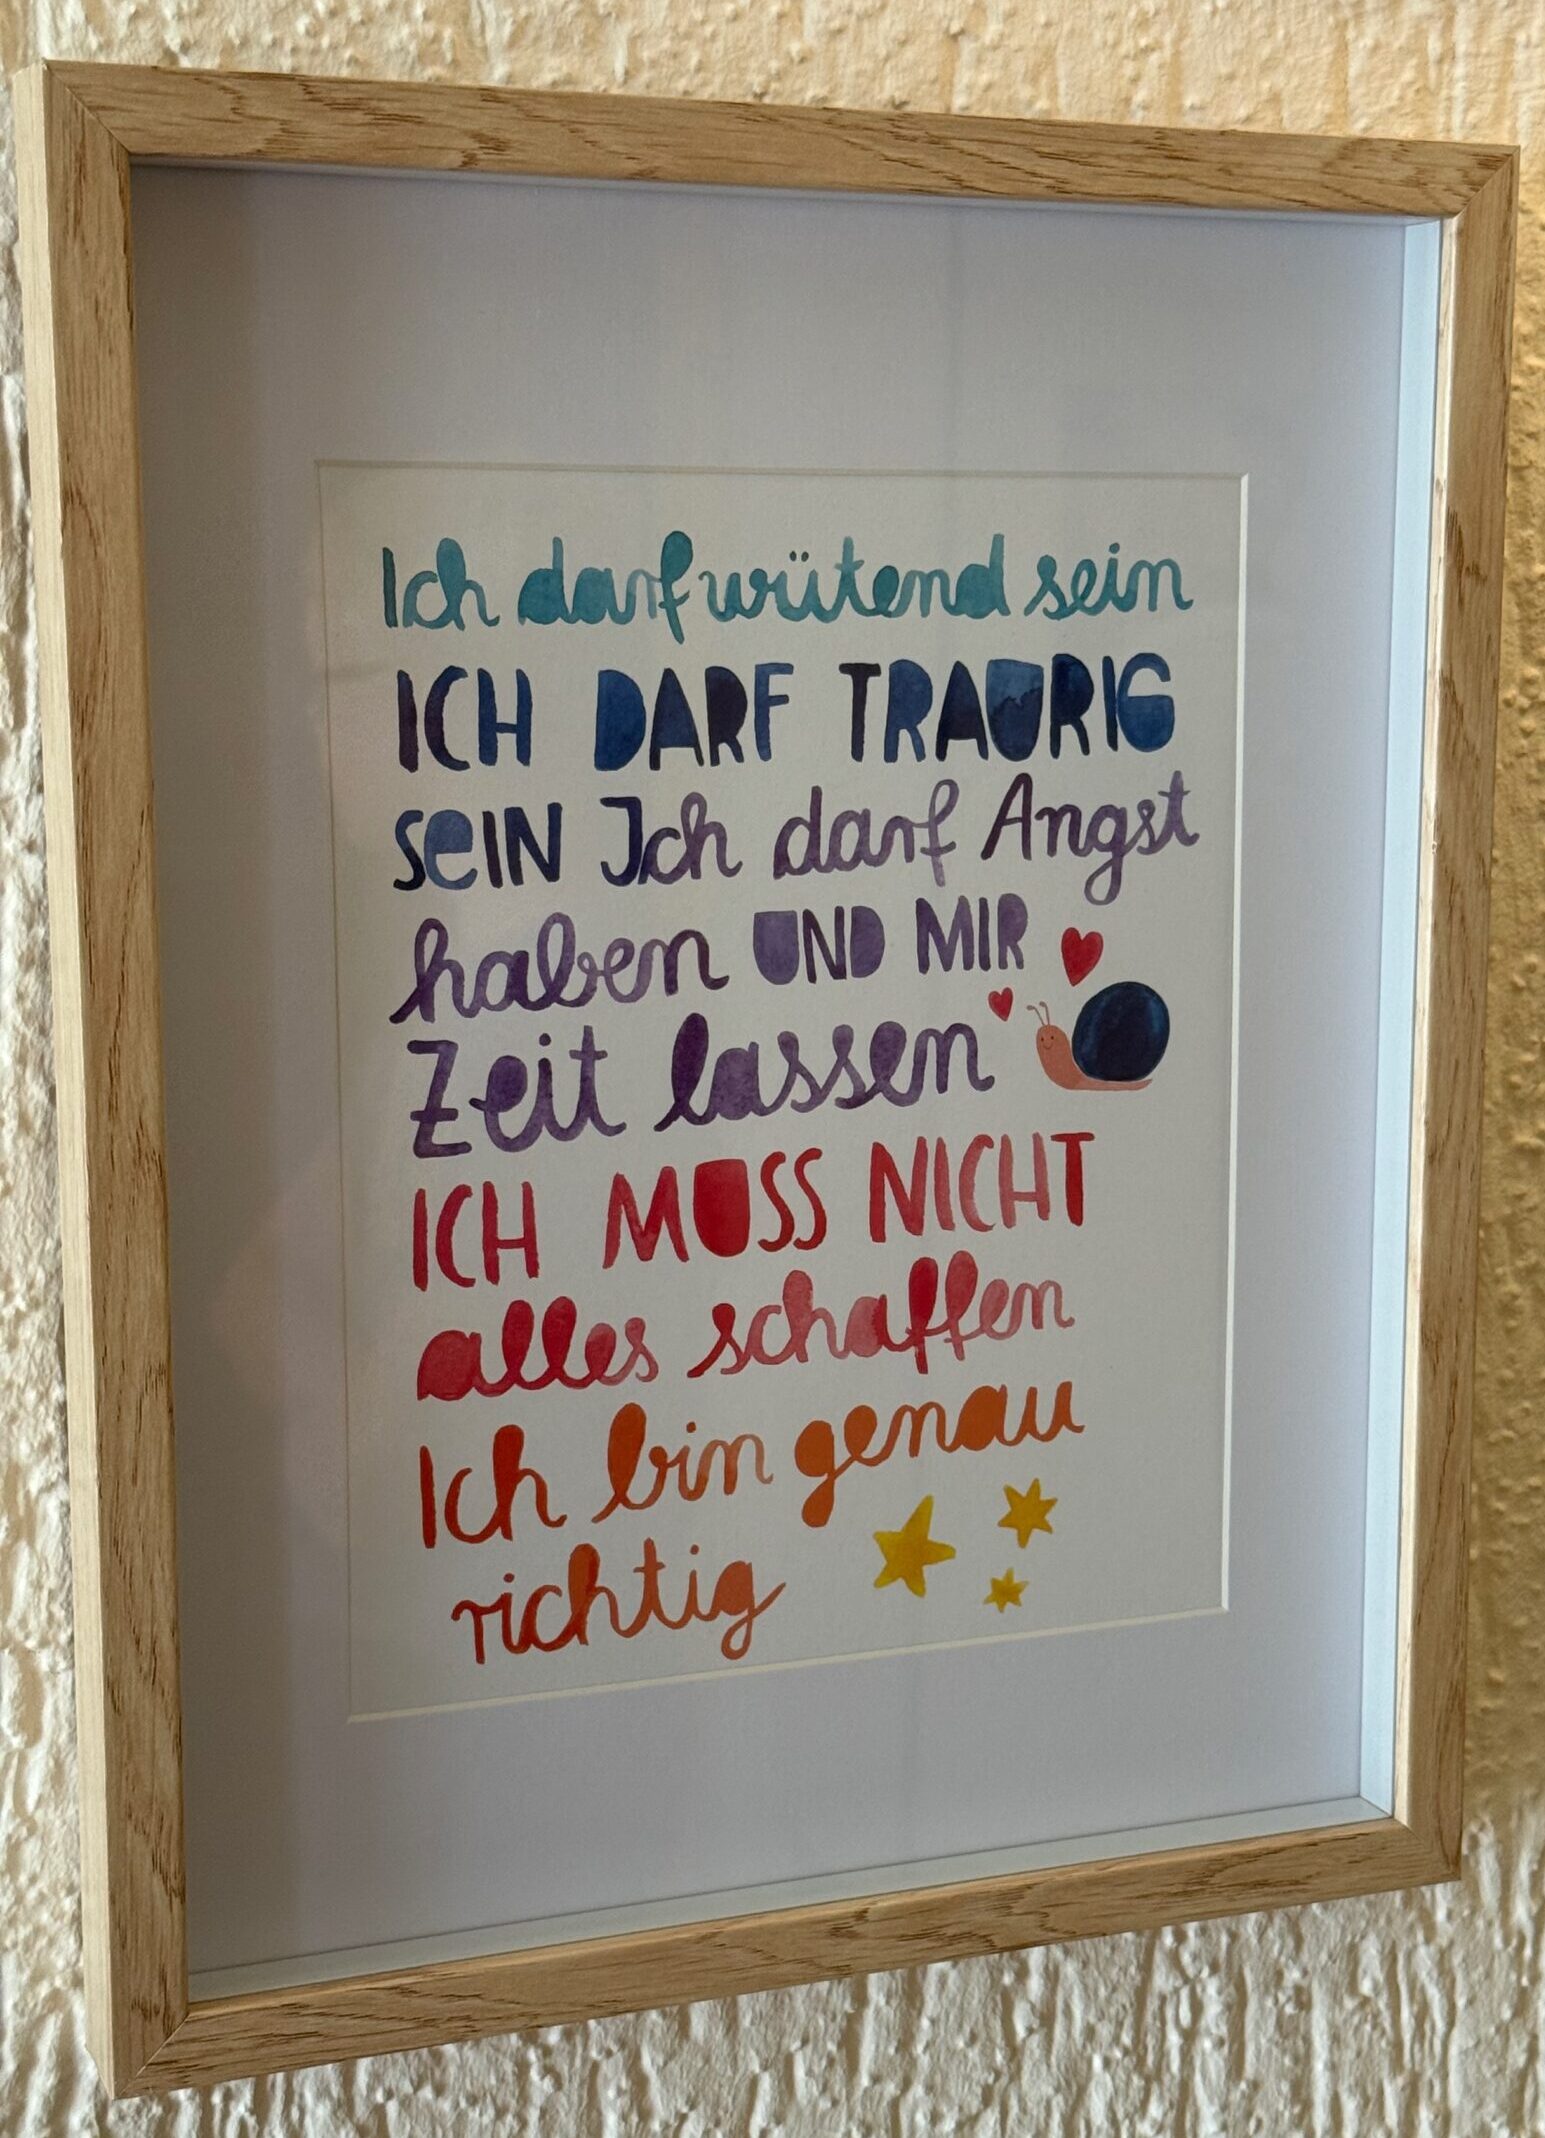 Ich darf wütend sein
ICH DARF TRAURIG
SeIN Ich darf Angst
haben UND MIR
Zeit lassen
ICH MUSS NICHT
alles schaffen
Ich bin genau
richtig